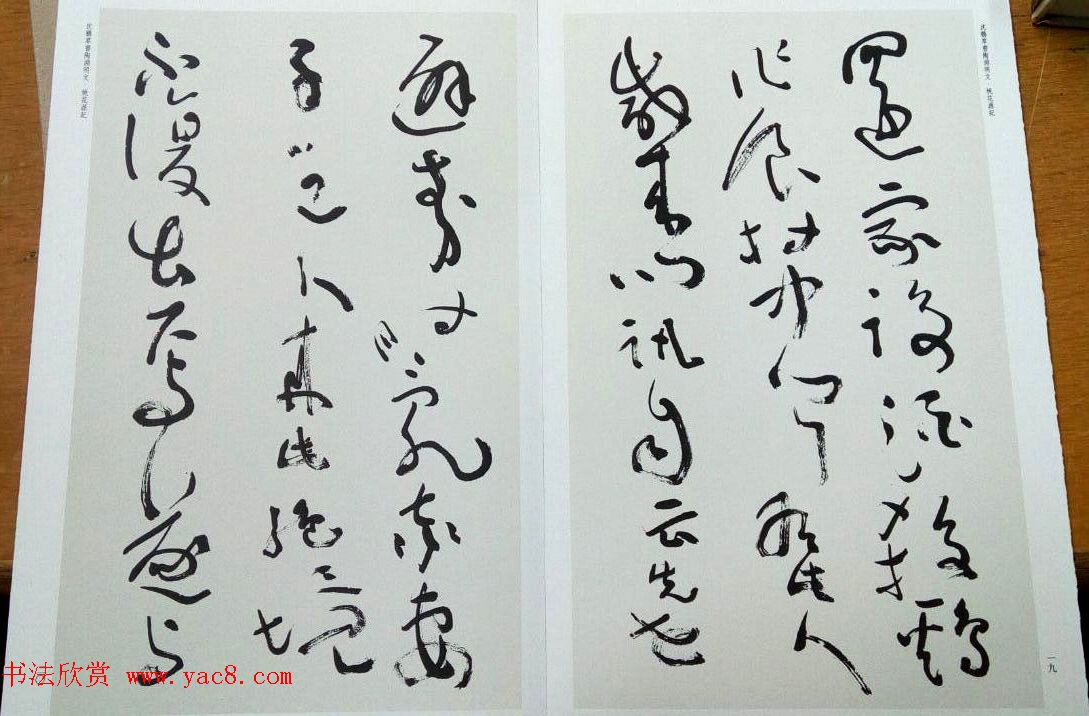 沈鵬草書陶淵明文·桃花源記
還家設酒殺雞
作食村中聞有此人
咸來問訊自云先世
一九
避秦時亂率妻
子邑人來此絕境
不復出焉遂與
沈鵬草書陶淵明文·桃花源記
书法欣赏 www.yac8.com